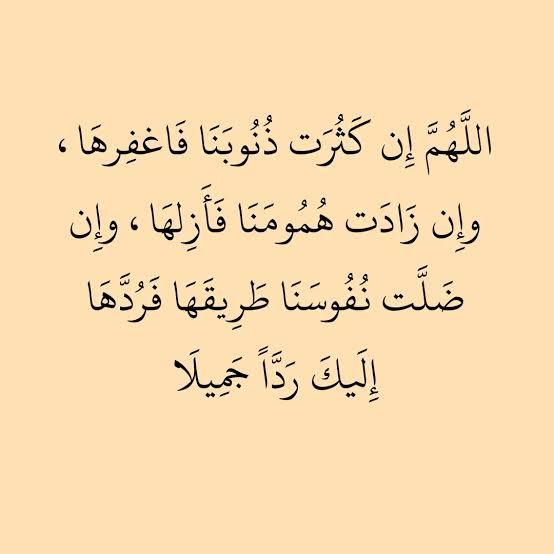 اللَّهُمَّ إِن كَثُرَت ذُنُوبَنَا فَاغفِرهَا ،
وإِن زَادَت هُمُومَنَا فَأَزِلهَا ، وإِن
ضَلَّت نُفُوسَنَا طَرِيقَهَا فَرُدَّهَا
إِلَيكَ رَدَّاً جَمِيلَا